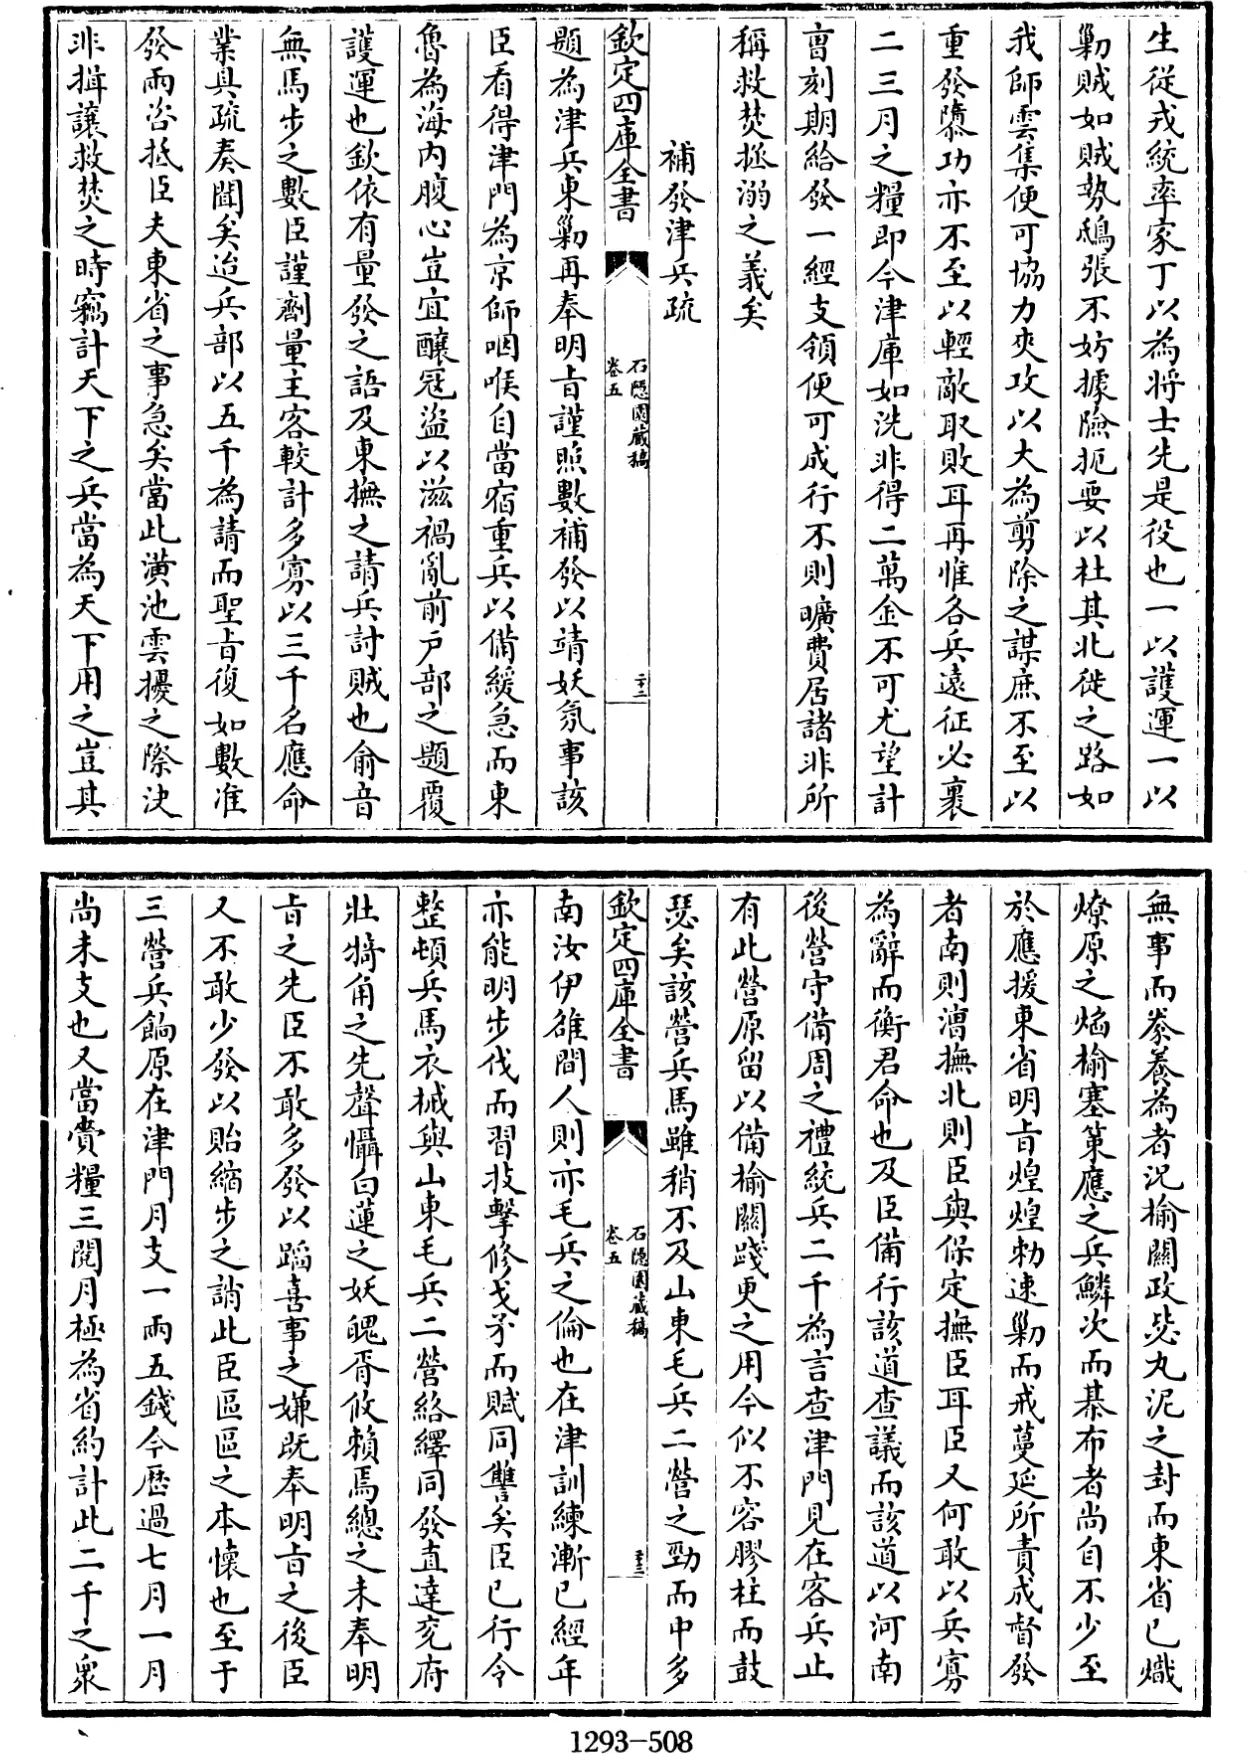 生從戎統率家丁以為將士先是役也一以護運一以
勦賊如賊勢鴟張不妨據險扼要以杜其北徙之路如
我師雲集便可協力夾攻以大為剪除之謀庶不至以
重發隳功亦不至以輕敵取敗耳再惟各兵遠征必裹
二三月之糧即今津庫如洗非得二萬金不可尤望計
曺刻期給發一經支領便可成行不則曠費居諸非所
稱救焚拯溺之義矣
補發津兵疏
欽定四庫全書
石隱園藏稿
卷五
二十二
題為津兵東勦再奉明旨謹照數補發以靖妖氛事該
臣看得津門為京師咽喉自當宿重兵以備緩急而東
魯為海内腹心豈宜釀冦盜以滋禍亂前户部之題覆
護運也欽依有量發之語及東撫之請兵討賊也俞音
無馬步之數臣謹劑量主客較計多寡以三千名應命
業具疏奏聞矣迨兵部以五千為請而聖旨復如數准
發兩咨抵臣夫東省之事急矣當此潢池雲擾之際決
非揖讓救焚之時竊計天下之兵當為天下用之豈其
無事而豢養為者況榆關政毖丸泥之封而東省已熾
燎原之焰榆塞策應之兵鱗次而棊布者尚自不少至
於應援東省明旨煌煌勅速勦而戒蔓延所責成督發
者南則漕撫北則臣與保定撫臣耳臣又何敢以兵寡
為辭而衡君命也及臣備行該道查議而該道以河南
後營守備周之禮統兵二千為言查津門見在客兵止
有此營原留以備榆關踐更之用今似不容膠柱而鼓
瑟矣該營兵馬雖稍不及山東毛兵二營之勁而中多
欽定四庫全書
石隱園藏稿
卷五
二十三
南汝伊雒間人則亦毛兵之倫也在津訓練漸已經年
亦能明步伐而習技擊修戈矛而賦同讐矣臣已行令
整頓兵馬衣械與山東毛兵二營絡繹同發直達兖府
壯犄角之先聲懾白蓮之妖魄胥攸頼焉總之未奉明
旨之先臣不敢多發以蹈喜事之嫌既奉明旨之後臣
又不敢少發以貽縮步之誚此臣區區之本懷也至于
三營兵餉原在津門月支一兩五錢今歴過七月一月
尚未支也又當賫糧三閱月極為省約計此二千之衆
1293-508